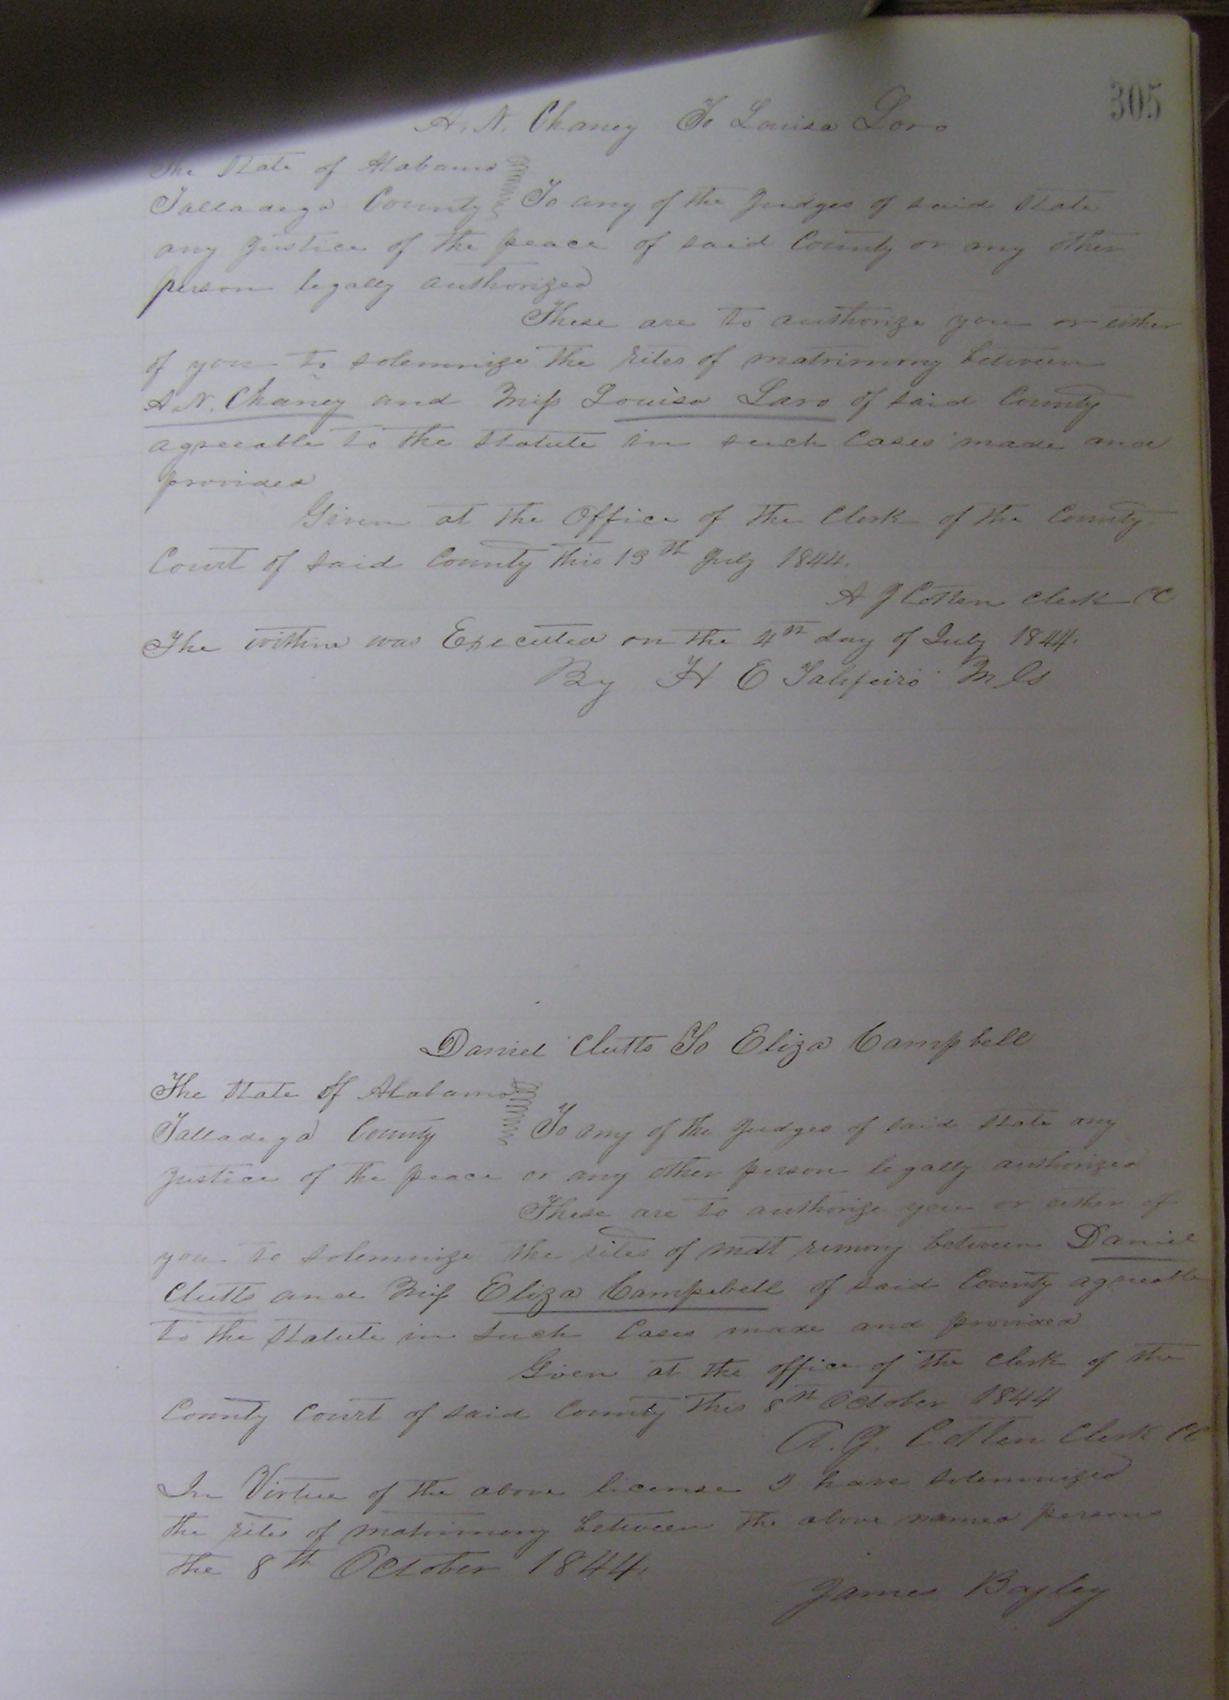 305
A. N. Chaney To Louisa Laro
The State of Alabama
Talladega County To any of the Judges of said State
any Justice of the peace of said County or any other
person legally authorized
These are to authorize you or either
of you to solemnize the rites of matrimony between
A. N. Chaney and Miss Louisa Laro of said County
agreeable to the Statute in such Cases made and
provided
Given at the Office of the Clerk of the County
Court of said County this 13th July 1844.
A J Cotten Clerk CC
The within was Executed on the 4th day of July 1844.
By H E
Daniel Clutts To Eliza Campbell
The State of Alabama
Talladega County To any of the Judges of said State any
Justice of the peace or any other person legally authorized
These are to authorize you or either of
you to solemnize the rites of mat rimony between Daniel
Clutts and Miss Eliza Campbell of said County agreeable
to the Statute in such Cases made and provided
Given at the office of the Clerk of the
County Court of said County this 8th October 1844
A. J. Cotten Clerk CC
In Virtue of the above license I have solemnized
the rites of matrimony between the above named persons
the 8th October 1844.
James Bagley